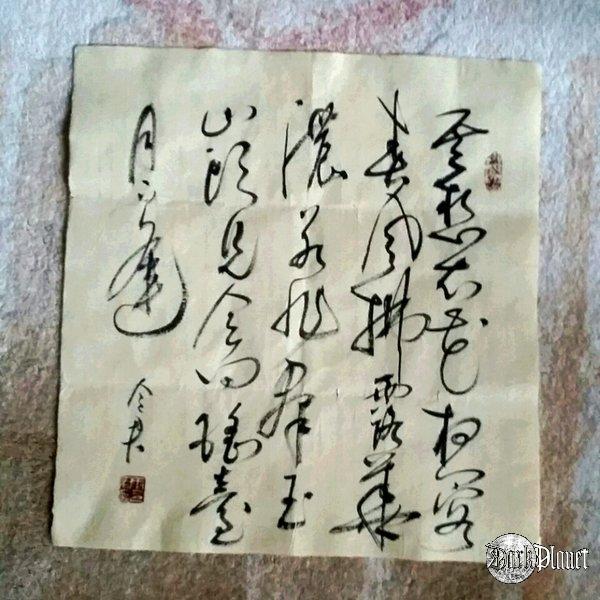 雲想衣花想容
春風拂露華
濃若非群玉
山頭見會向瑤臺
月下逢
Dark Planet